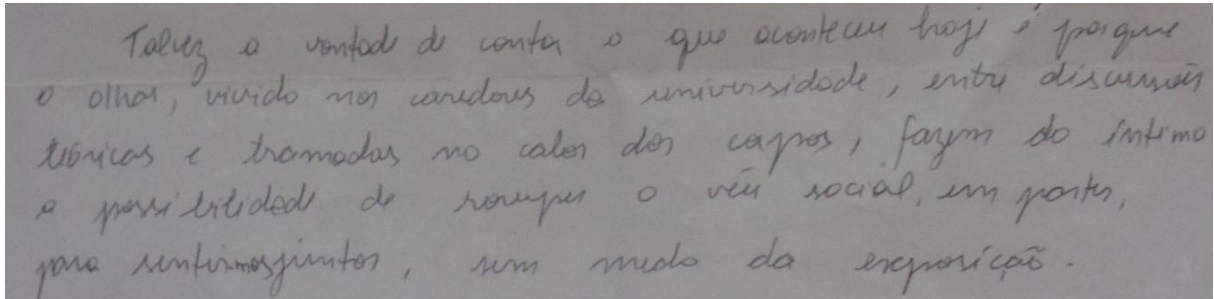 Talvez a vontade de contar o que aconteceu hoje é porque
o olhar, vivido nos corredores da universidade, entre discussões
teóricas e tramadas no calor dos corpos, fazem do íntimo
a possibilidade de romper o véu social, em partes,
para sentirmos juntos, sem medo da exposição.